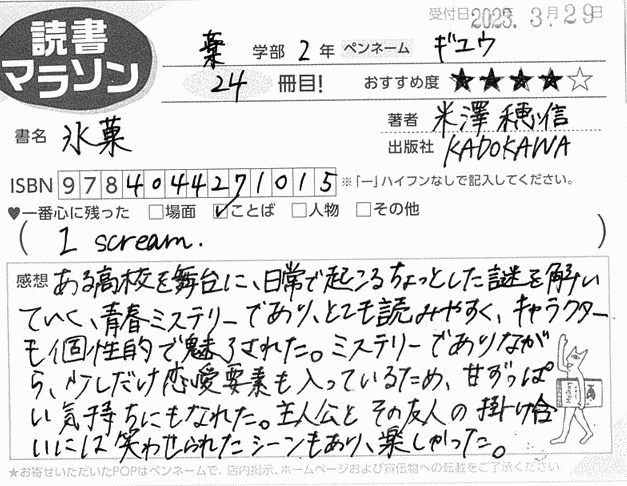 受付日2023.3月29日
読書
マラソン
薬 学部 2 年 ペンネーム ギユウ
24 冊目! おすすめ度 ★★★★☆
書名 氷菓
著者 米澤穂信
出版社 KADOKAWA
ISBN 9784044271015 ※「ー」ハイフンなしで記入してください。
♥一番心に残った □場面 ☑ことば □人物 □その他
( I scream. )
感想 ある高校を舞台に、日常で起こるちょっとした謎を解い
ていく、青春ミステリーであり、とても読みやすく、キャラクター
も個性的で魅了された。ミステリーでありなが
ら、少しだけ恋愛要素も入っているため、甘ずっぱ
い気持ちにもなれた。主人公とその友人の掛け合
いには笑わせられたシーンもあり、楽しかった。
★お寄せいただいたPOPはペンネームで、店内掲示、ホームページおよび宣伝物への転載をご了承ください。